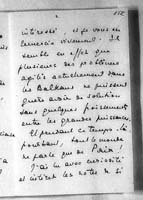 2
intéressé, et je vous en
remercie vivement. Il
semble en effet que
plusieurs des problèmes
agités actuellement dans
les Balkans ne puissent
guère avoir de solution
sans quelque
entre les grandes puissances.
Et pendant ce temps-là
pourtant, tout le monde
ne parle que de
J'ai lu avec curiosité
et intérêt les notes de